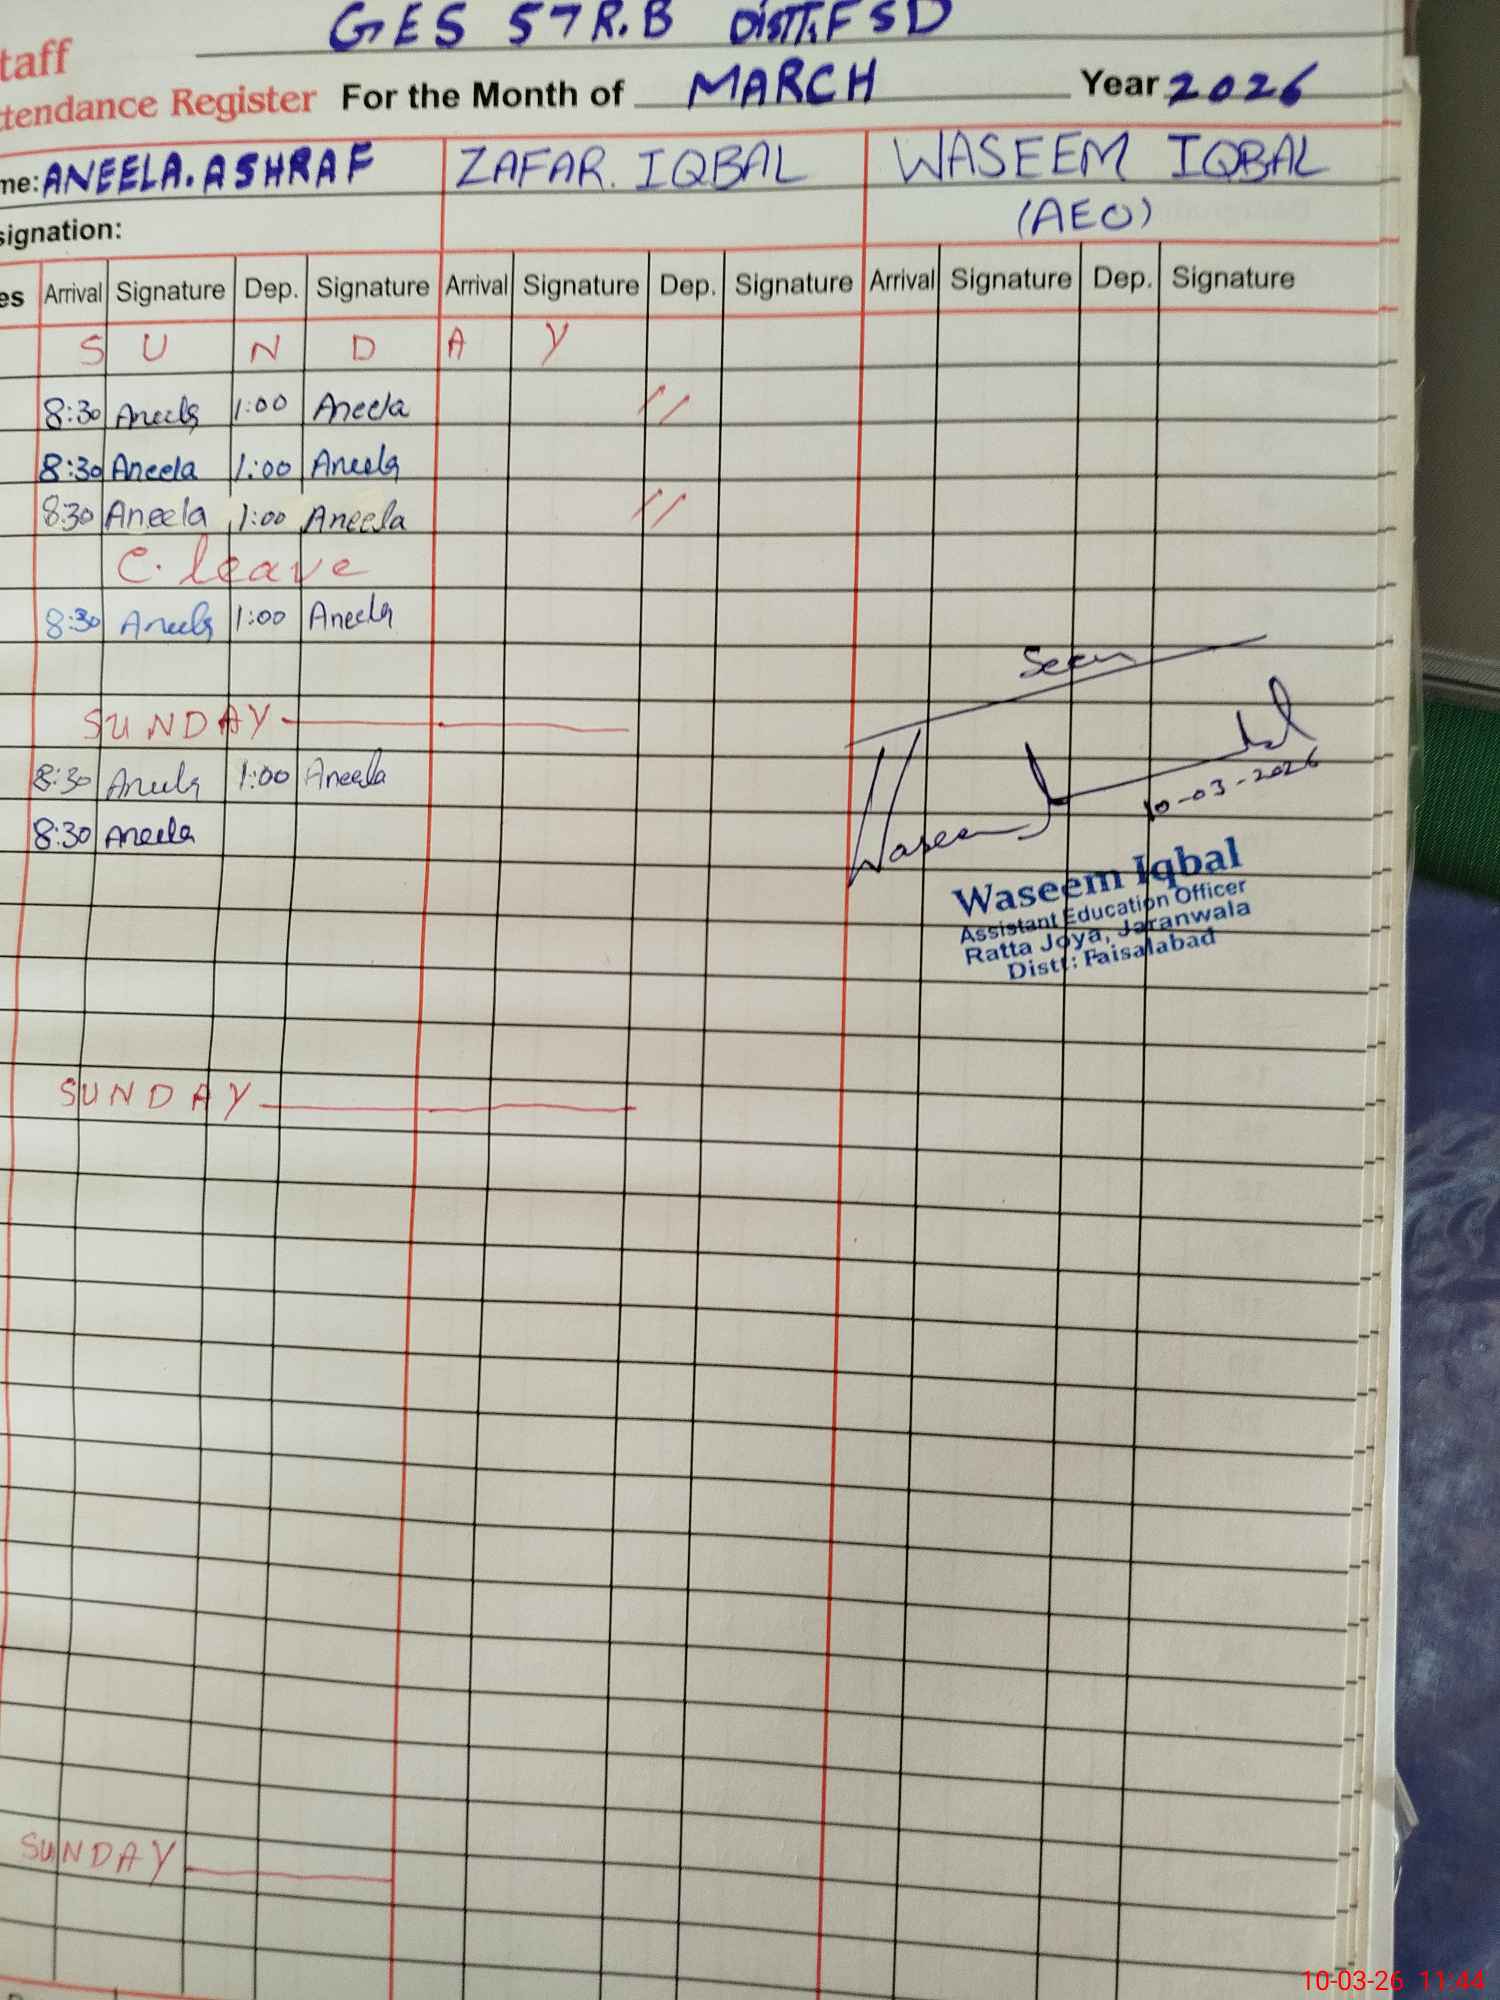 GES 57 R.B DISTT. FSD
taff
ttendance Register For the Month of MARCH Year 2026
me: ANEELA. ASHRAF ZAFAR. IQBAL WASEEM IQBAL
(AEO)
signation:
es Arrival Signature Dep. Signature Arrival Signature Dep. Signature Arrival Signature Dep. Signature
S U N D A Y
8:30 Aneela 1:00 Aneela //
8:30 Aneela 1:00 Aneela
8:30 Aneela 1:00 Aneela //
C. leave
8:30 Aneela 1:00 Aneela
Seen
SUNDAY
8:30 Aneela 1:00 Aneela
10-03-2026
8:30 Aneela
Waseem
Waseem Iqbal
Assistant Education Officer
Ratta Joya, Jaranwala
Distt: Faisalabad
SUNDAY
SUNDAY
10-03-26 11:44